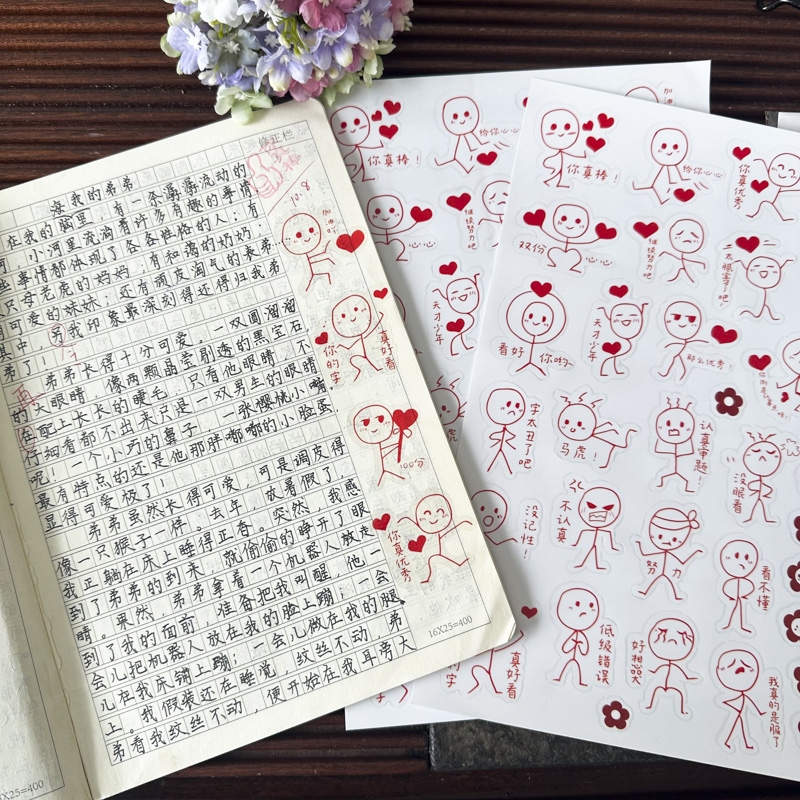 修正栏
我的弟弟
在我的脑里，有一条潺潺流动的
小河，小河里流淌着许多有趣的事情
些事情都体现了各各性格的人；有
只母老虎的妈妈；有和蔼的奶奶；
可爱的妹妹；还有顽皮淘气的表弟…
其中，另我印象最深刻得还得归我弟
弟了！
弟弟长得十分可爱，一双圆溜溜
的大眼睛，像两颗晶莹剔透的黑宝石
在配上长长的睫毛，只看他眼睛，不
仔细看都不出来只是一双男生的眼睛
呢！一个小巧的鼻子，一张樱桃小嘴，
最有特点的还是他那胖嘟嘟的小脸蛋，
显得可爱极了！
弟弟虽然长得可爱，可是调皮得
像一只猴子一样。去年，放暑假了，
我正躺在床上睡得正香。突然，我感
到了弟弟的到来，就偷偷的睁开了眼
睛。果然，弟弟拿着一个机器人放走
到了我的面前，准备把我叫醒，他一
会儿把机器人放在我的脸上蹦；一会
儿在我床铺上蹦；一会儿做在我的腿
上。我假装还在睡觉，纹丝不动，弟
弟看我纹丝不动，便开始在我耳旁大
16X25=400
X25=400
10.8
加油哟
你的字
真好看
100分
你真优秀
你真棒！
给你心心
心心
继续努力吧
天才少年
虎
真好看
加油
你真棒！
给你心心
你真优秀
双份
心心
继续努力吧
太惬意了吧！
看好
你哟~
天才少年
那么优秀！
字太丑了吧
马虎！
认真审题！
没眼看
没记性！
不认真
努力
看不懂
低级错误
好想哭
我真的是服了